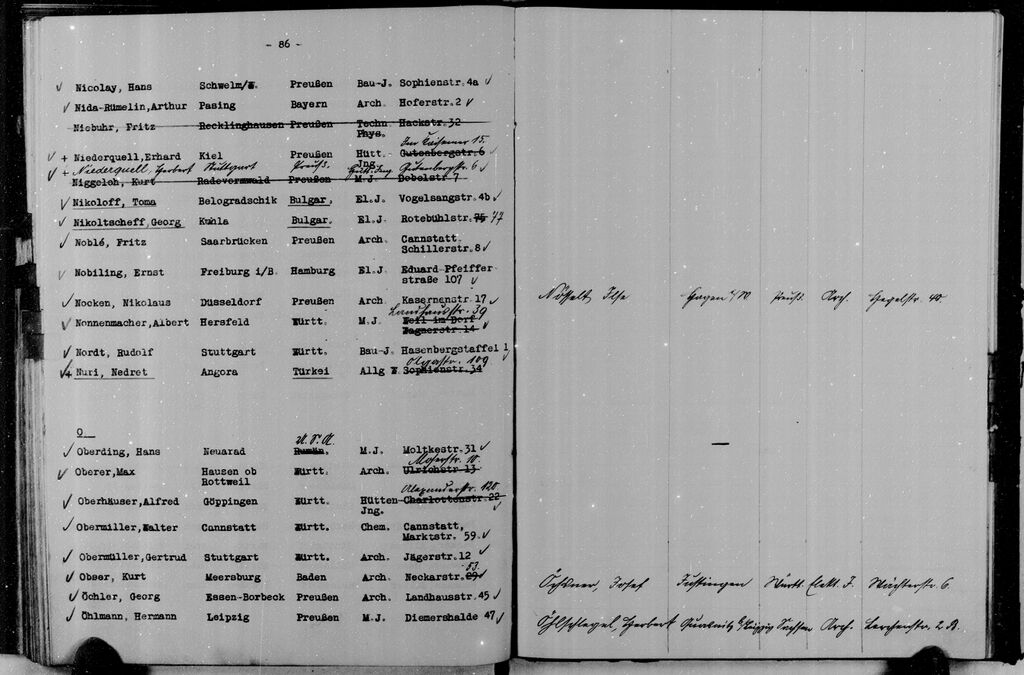 - 86 -
Nicolay, Hans Schwelm/W. Preußen Bau-J. Sophienstr.4a
Nida-Rümelin,Arthur Pasing Bayern Arch. Hoferstr.2
Niebuhr, Fritz Recklinghausen Preußen Techn. Hackstr.32
Phys.
15.
+ Niederquell,Erhard Kiel Preußen Hütt. Gutenbergstr.6
Jng.
+ Niederquell, Herbert Stuttgart Preuß. Hütt. Ing Gutenbergstr. 6
Niggeloh, Kurt Radevormwald Preußen M.J. Bobelstr.7
Nikoloff, Toma Belogradschik Bulgar. El.J. Vogelsangstr.4b
Nikoltscheff,Georg Kuhla Bulgar. El.J. Rotebühlstr.75 77
Noblé, Fritz Saarbrücken Preußen Arch. Cannstatt
Schillerstr.8
Nobiling, Ernst Freiburg i/B. Hamburg El.J. Eduard Pfeiffer
straße 107
Nocken, Nikolaus Düsseldorf Preußen Arch. Kasernenstr.17
Landhausstr. 39
Nonnenmacher,Albert Hersfeld Württ. M.J. Weil im Dorf
Wagnerstr.14
Nordt, Rudolf Stuttgart Württ. Bau-J. Hasenbergstaffel 1
Olgastr. 109
+ Nuri, Nedret Angora Türkei Allg W. Sophienstr.34
O
U.S.A.
Oberding, Hans Neuarad Rumän. M.J. Moltkestr.31
Moserstr. 10
Oberer,Max Hausen ob Württ. Arch. Ulrichstr.13
Rottweil
Alexanderstr. 120
Oberhäuser,Alfred Göppingen Württ. Hütten Charlottenstr.22
Jng.
Obermiller,Walter Cannstatt Württ. Chem. Cannstatt,
Marktstr. 59
Obermüller,Gertrud Stuttgart Württ. Arch. Jägerstr.12
53
Obser, Kurt Meersburg Baden Arch. Neckarstr.
Öchler, Georg Essen-Borbeck Preußen Arch. Landhausstr.45
Öhlmann, Hermann Leipzig Preußen M.J. Diemershalde 47
Nösselt, Ilse Hagen i/W Preuß. Arch. Hegelstr. 40
—
Öchsner, Josef Justingen Württ. Elekt. J. Wächterstr. 6
Öhlschlegel, Herbert Leipzig Sachsen Arch. Lerchenstr. 2 R.